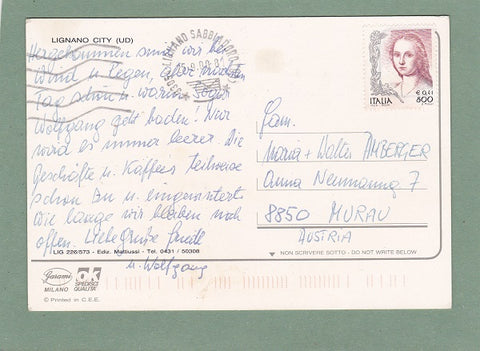 LIGNANO CITY (UD)
Hergekommen sind wir bei
Wind u. Regen, aber inzwischen
Tag schön u. warm. Sogar
Wolfgang geht baden! Nur
wird es immer leerer. Die
Geschäfte u. Kaffees teilweise
schon zu u. eingewintert.
Wie lange wir bleiben noch
offen. Liebe Grüße
u. Wolfgang
LIGNANO SABBIADORO
€ 0,41
ITALIA 800
Fam.
Maria + Walter AMBERGER
Anna Neumanng 7
8850 MURAU
AUSTRIA
LIG 226/573 - Ediz. Mattiussi - Tel. 0431 / 50308
NON SCRIVERE SOTTO - DO NOT WRITE BELOW
Garami
MILANO
OK
SPEDISCI
QUALITA'
© Printed in C.E.E.